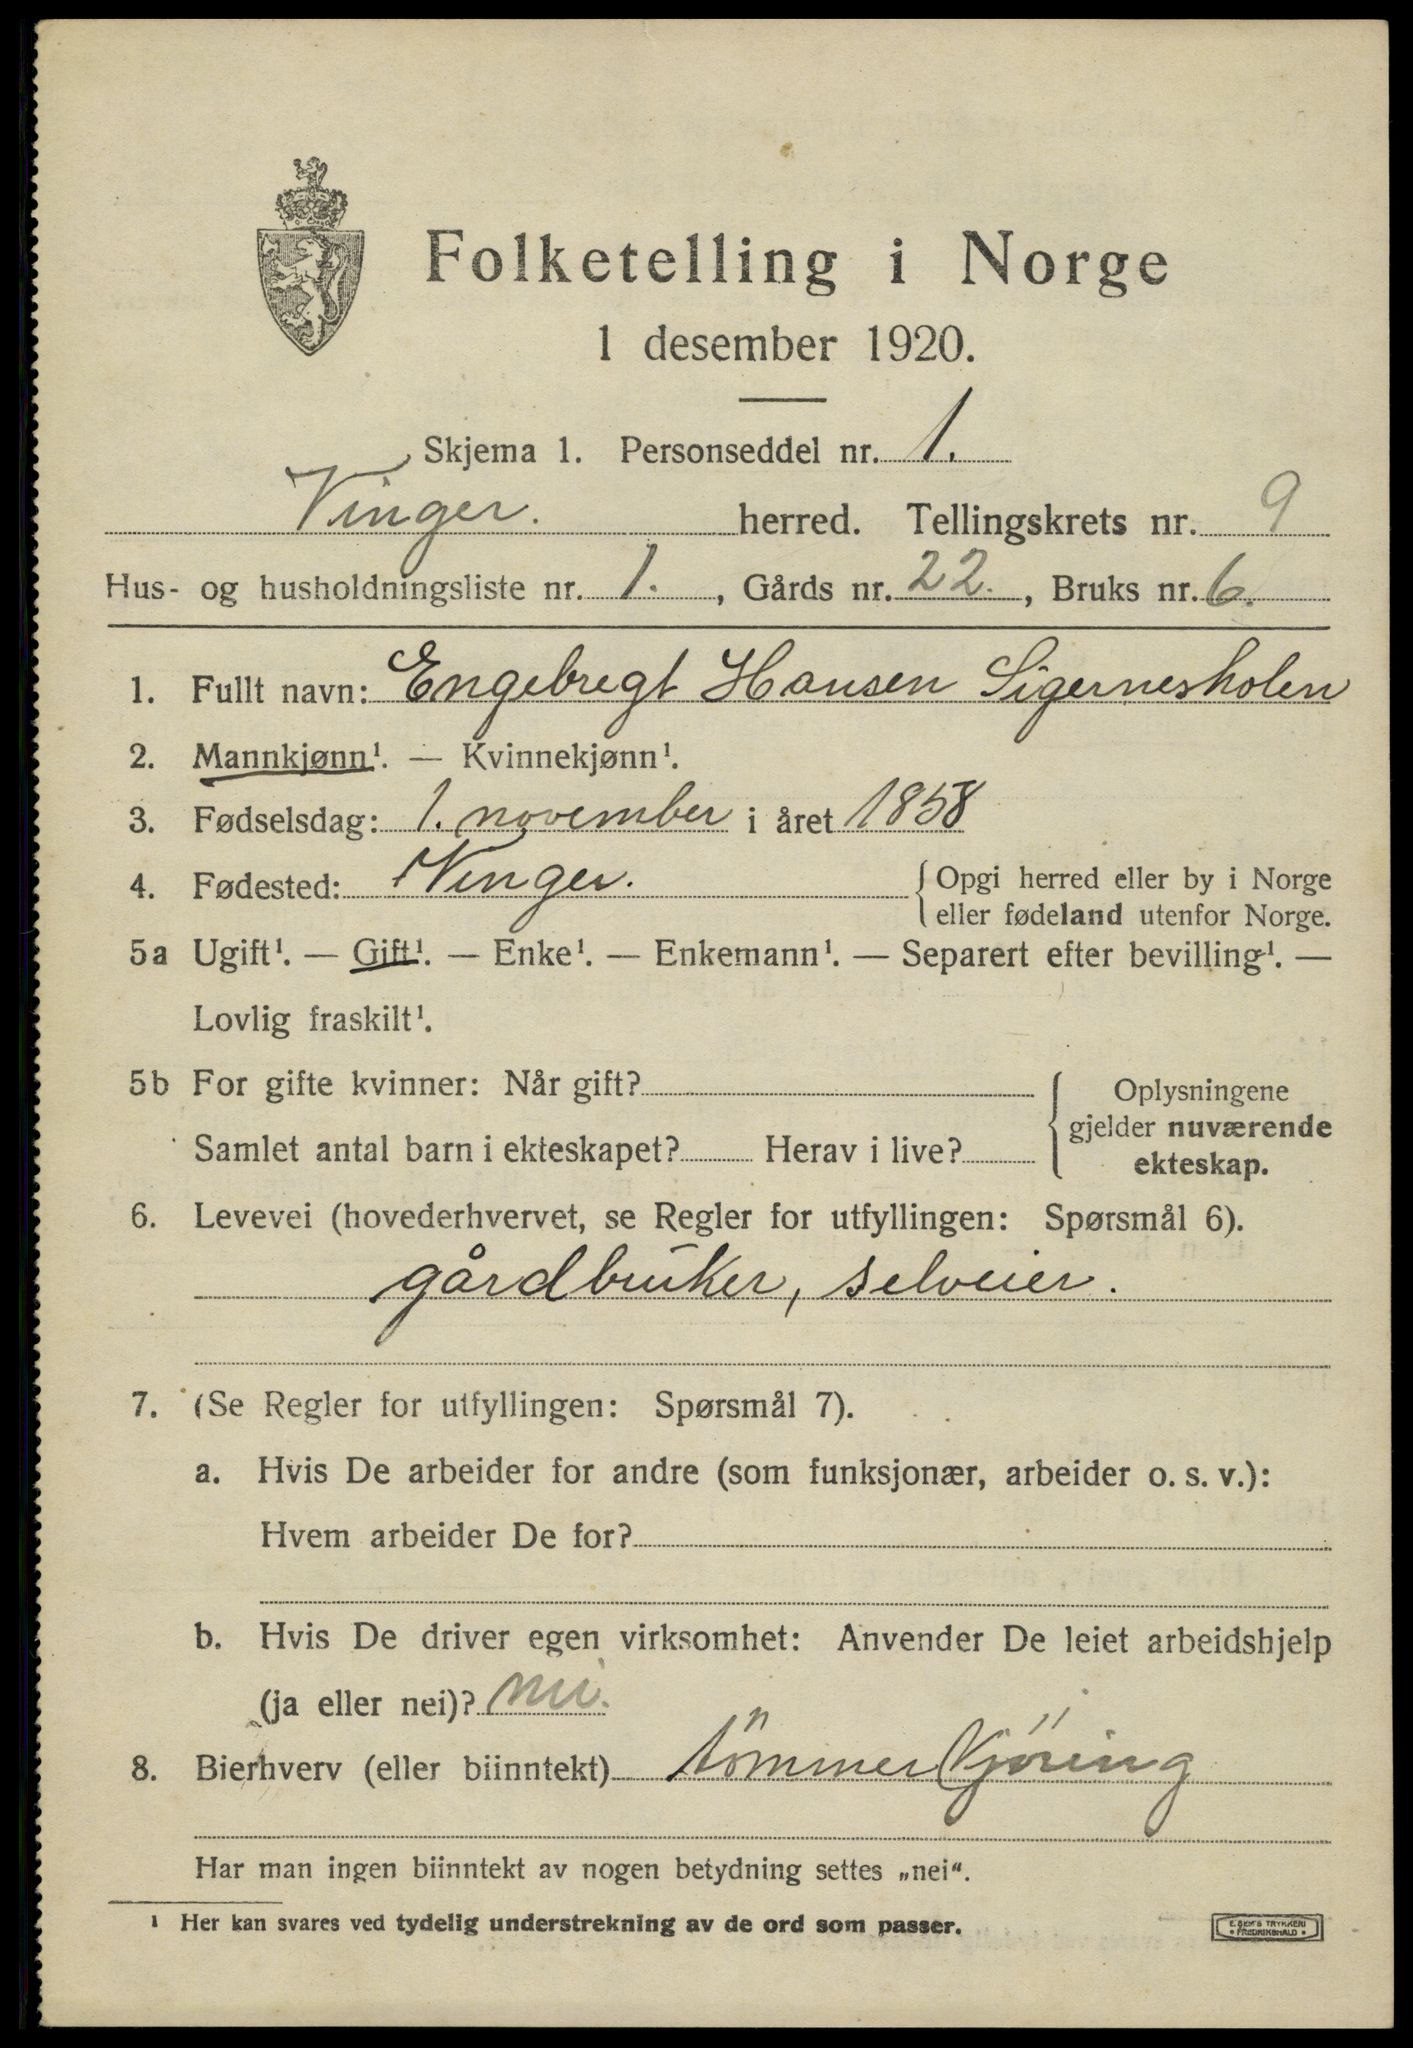 Folketelling i Norge
1 desember 1920.
Skjema 1. Personseddel nr. 1.
Vinger. herred. Tellingskrets nr. 9
Hus- og husholdningsliste nr. 1. , Gårds nr. 22. , Bruks nr. 6.
1. Fullt navn: Engebregt Hansen Sigernesholen
2. Mannkjønn¹. — Kvinnekjønn¹.
3. Fødselsdag: 1. november i året 1858
4. Fødested: Vinger. { Opgi herred eller by i Norge
eller fødeland utenfor Norge.
5a Ugift¹. — Gift¹. — Enke¹. — Enkemann¹. — Separert efter bevilling¹. —
Lovlig fraskilt¹.
5b For gifte kvinner: Når gift?
Samlet antal barn i ekteskapet? Herav i live?
{ Oplysningene
gjelder nuværende
ekteskap.
6. Levevei (hovederhvervet, se Regler for utfyllingen: Spørsmål 6).
gårdbruker, selveier.
7. (Se Regler for utfyllingen: Spørsmål 7).
a. Hvis De arbeider for andre (som funksjonær, arbeider o. s. v.):
Hvem arbeider De for?
b. Hvis De driver egen virksomhet: Anvender De leiet arbeidshjelp
(ja eller nei)? nei.
8. Bierhverv (eller biinntekt) tömmerkjöring
Har man ingen biinntekt av nogen betydning settes „nei“.
¹ Her kan svares ved tydelig understrekning av de ord som passer.
E. SEM'S TRYKKERI
• FREDRIKSHALD •